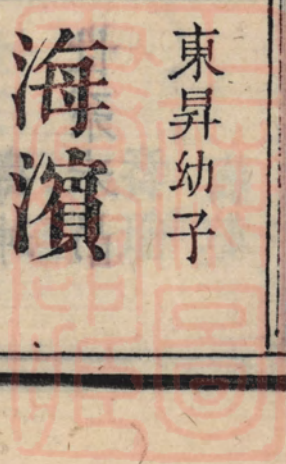 東昇幼子
海濱